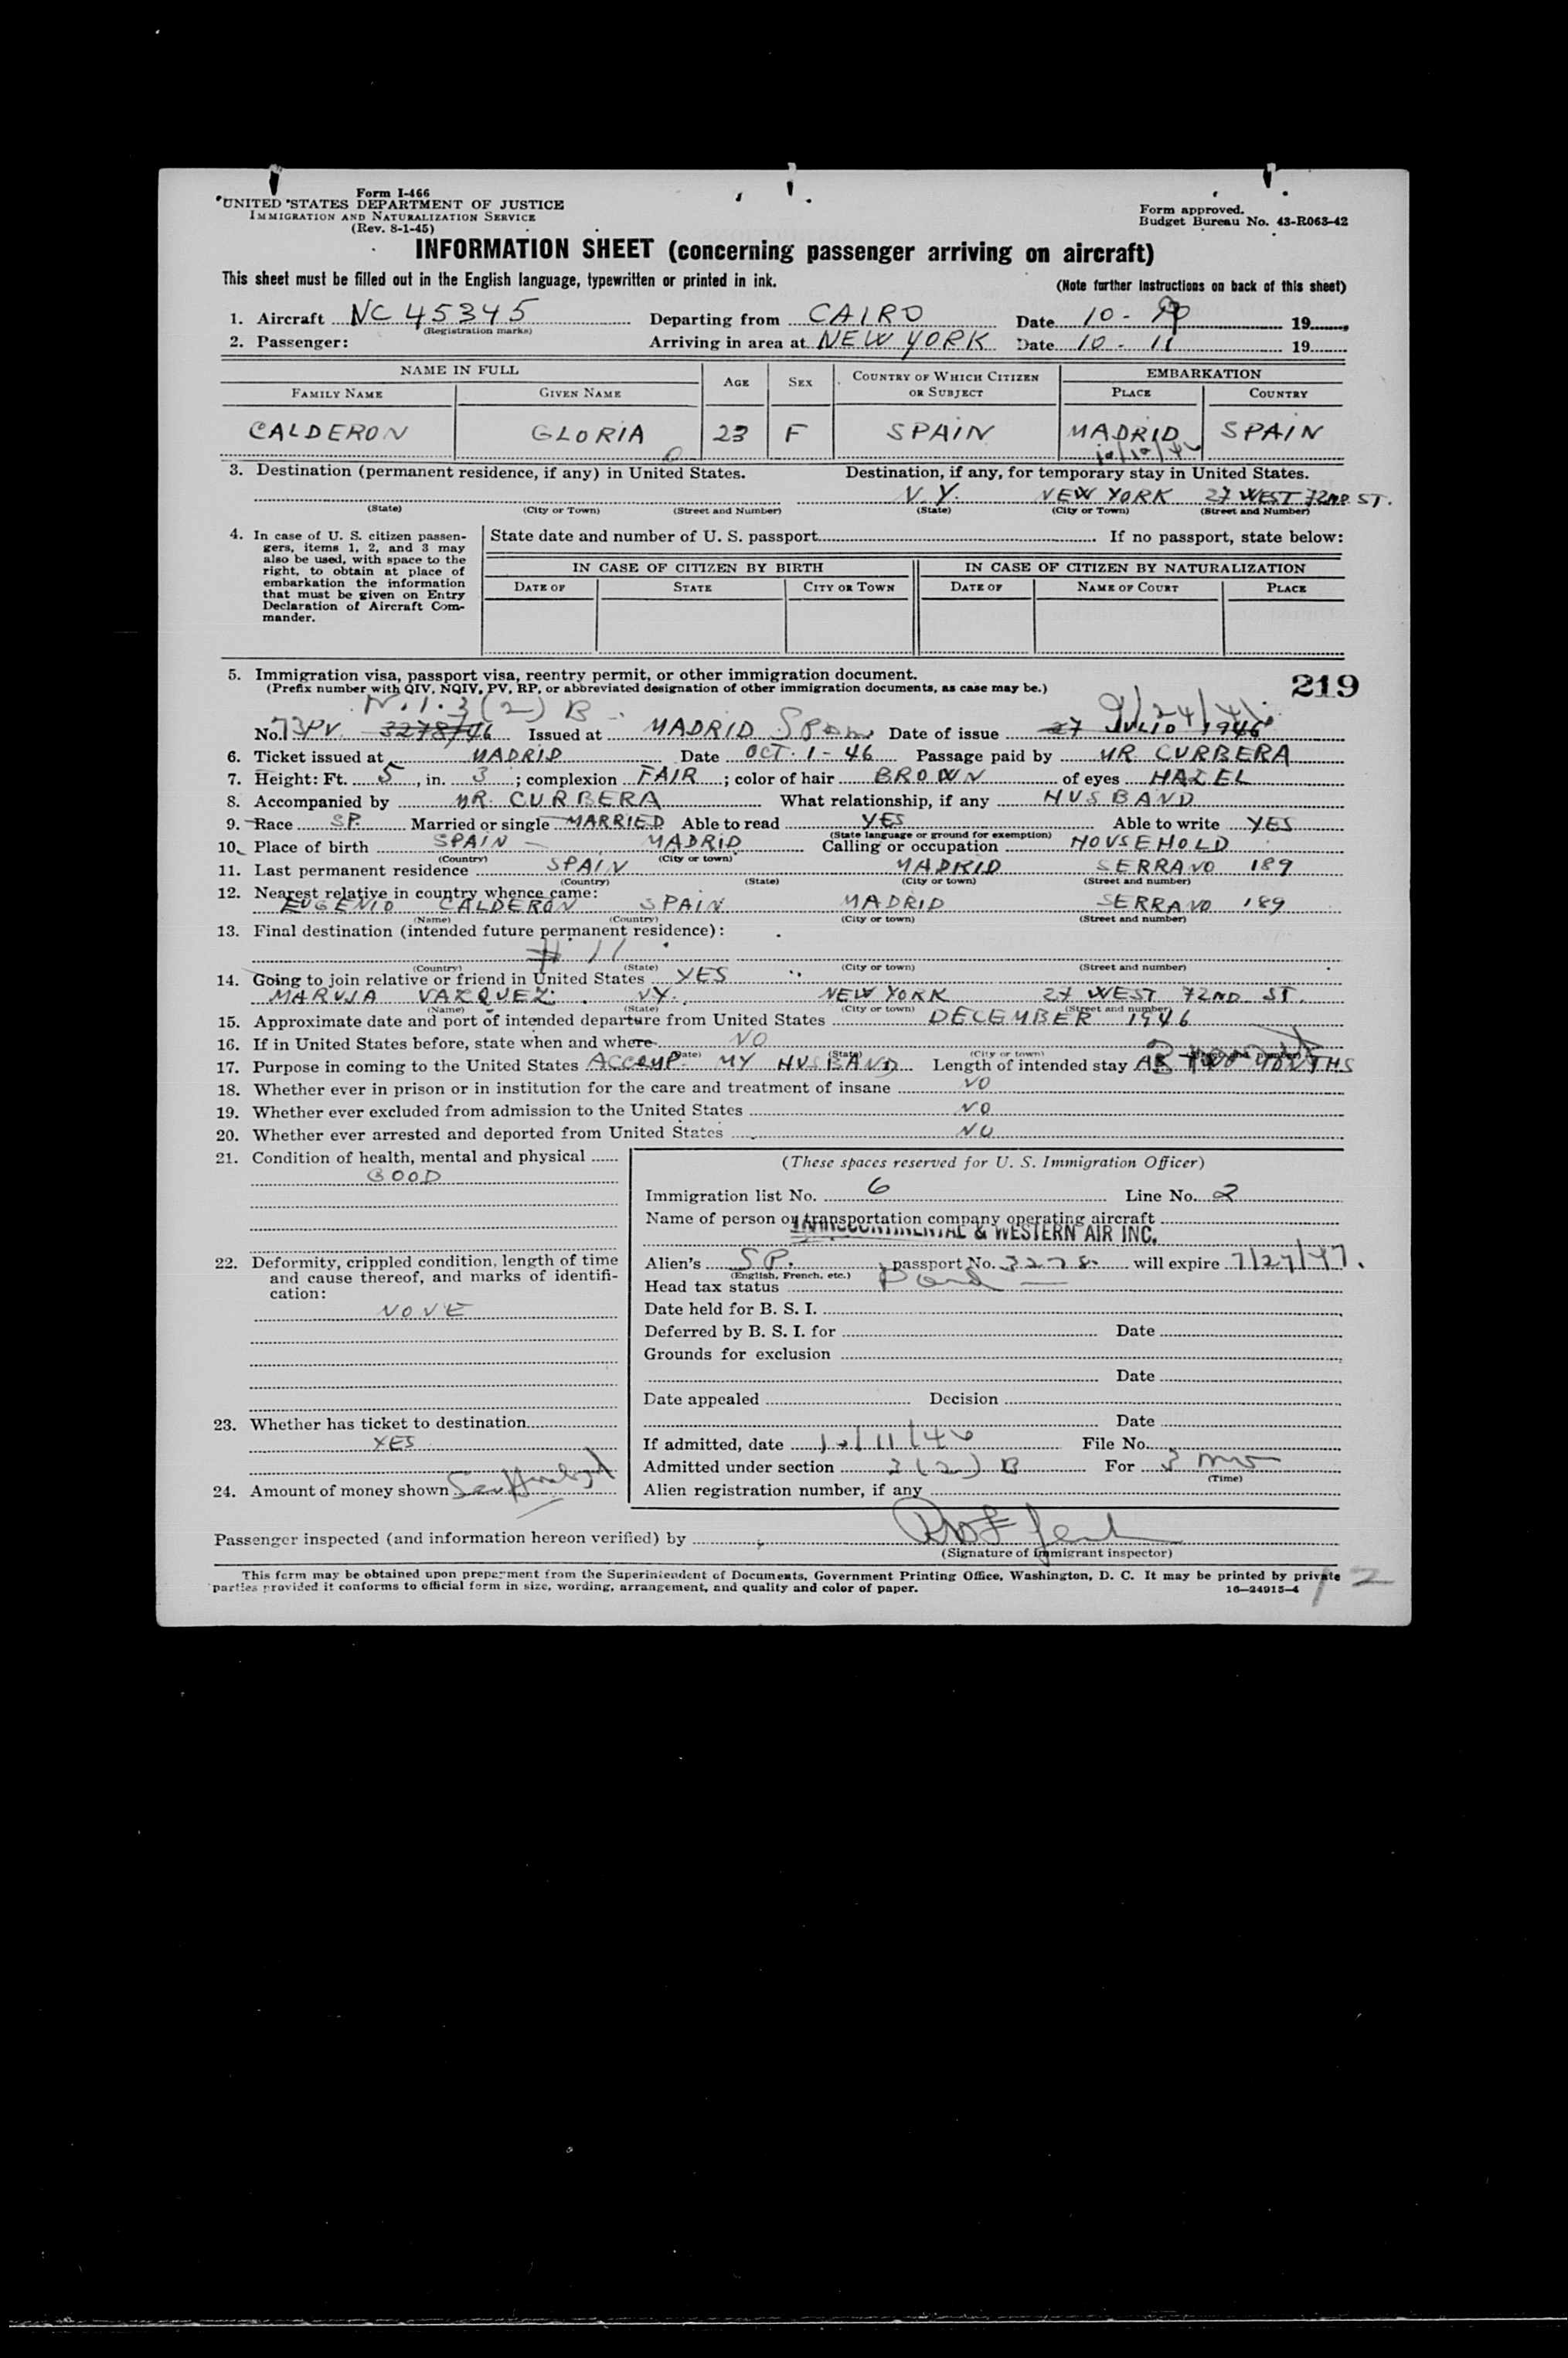 Form I-466
UNITED STATES DEPARTMENT OF JUSTICE
IMMIGRATION AND NATURALIZATION SERVICE
(Rev. 8-1-45)
Form approved.
Budget Bureau No. 43-R063-42
INFORMATION SHEET (concerning passenger arriving on aircraft)
This sheet must be filled out in the English language, typewritten or printed in ink.
(Note further instructions on back of this sheet)
1. Aircraft NC 45345 Departing from CAIRO Date 10- 19
(Registration marks)
2. Passenger: Arriving in area at NEW YORK Date 10-11 19
NAME IN FULL AGE SEX COUNTRY OF WHICH CITIZEN OR SUBJECT EMBARKATION
FAMILY NAME GIVEN NAME PLACE COUNTRY
CALDERON GLORIA 23 F SPAIN MADRID SPAIN
10/10/46
3. Destination (permanent residence, if any) in United States. Destination, if any, for temporary stay in United States.
N.Y. NEW YORK 27 WEST 72ND ST.
(State) (City or Town) (Street and Number) (State) (City or Town) (Street and Number)
4. In case of U. S. citizen passengers, items 1, 2, and 3 may also be used, with space to the right, to obtain at place of embarkation the information that must be given on Entry Declaration of Aircraft Commander.
State date and number of U. S. passport If no passport, state below:
IN CASE OF CITIZEN BY BIRTH IN CASE OF CITIZEN BY NATURALIZATION
DATE OF STATE CITY OR TOWN DATE OF NAME OF COURT PLACE
5. Immigration visa, passport visa, reentry permit, or other immigration document.
(Prefix number with QIV, NQIV, PV, RP, or abbreviated designation of other immigration documents, as case may be.)
219
3(2) B 9/24/46
No. 73PV 3278/46 Issued at MADRID Spain Date of issue 27 JULIO 1946
6. Ticket issued at MADRID Date OCT. 1-46 Passage paid by MR. CURBERA
7. Height: Ft. 5, in. 3; complexion FAIR; color of hair BROWN of eyes HAZEL
8. Accompanied by MR. CURBERA What relationship, if any HUSBAND
9. Race SP. Married or single MARRIED Able to read YES Able to write YES
(State language or ground for exemption)
10. Place of birth SPAIN MADRID Calling or occupation HOUSEHOLD
(Country) (City or town)
11. Last permanent residence SPAIN MADRID SERRANO 189
(Country) (State) (City or town) (Street and number)
12. Nearest relative in country whence came:
EUGENIO CALDERON SPAIN MADRID SERRANO 189
(Name) (Country) (City or town) (Street and number)
13. Final destination (intended future permanent residence):
# 11
(Country) (State) (City or town) (Street and number)
14. Going to join relative or friend in United States YES
MARUJA VAZQUEZ NY. NEW YORK 27 WEST 72ND ST.
(Name) (State) (City or town) (Street and number)
15. Approximate date and port of intended departure from United States DECEMBER 1946
16. If in United States before, state when and where NO
(Date) (State) (City or town) (Street and number)
17. Purpose in coming to the United States ACCOMP. MY HUSBAND Length of intended stay TWO MONTHS
18. Whether ever in prison or in institution for the care and treatment of insane NO
19. Whether ever excluded from admission to the United States NO
20. Whether ever arrested and deported from United States NO
21. Condition of health, mental and physical
GOOD
22. Deformity, crippled condition, length of time and cause thereof, and marks of identification:
NONE
23. Whether has ticket to destination
YES
24. Amount of money shown
(These spaces reserved for U. S. Immigration Officer)
Immigration list No. 6 Line No. 2
Name of person or transportation company operating aircraft
TRANSCONTINENTAL & WESTERN AIR INC.
Alien's SP. passport No. 3278 will expire 7/27/47.
(English, French, etc.)
Head tax status
Date held for B. S. I.
Deferred by B. S. I. for Date
Grounds for exclusion
Date
Date appealed Decision
Date
If admitted, date 10/11/46 File No.
Admitted under section 3(2) B For 3 mos
(Time)
Alien registration number, if any
Passenger inspected (and information hereon verified) by
(Signature of immigrant inspector)
This form may be obtained upon prepayment from the Superintendent of Documents, Government Printing Office, Washington, D. C. It may be printed by private
parties provided it conforms to official form in size, wording, arrangement, and quality and color of paper. 16—24915-4
12